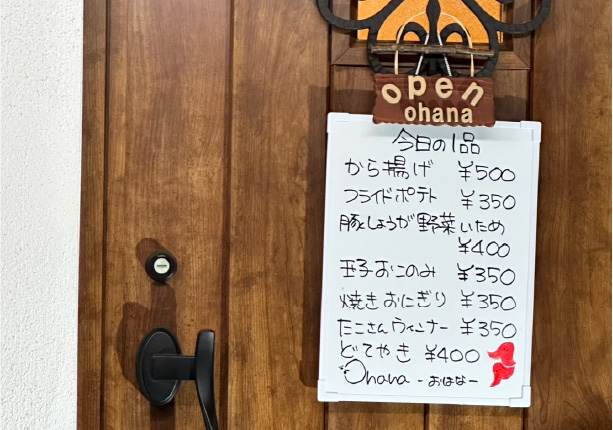 open
ohana
今日の1品
から揚げ ¥500
フライドポテト ¥350
豚としょうが野菜いため
¥400
玉子おこのみ ¥350
焼きおにぎり ¥350
たこさんウィンナー ¥350
どてやき ¥400
Ohana -おはな-